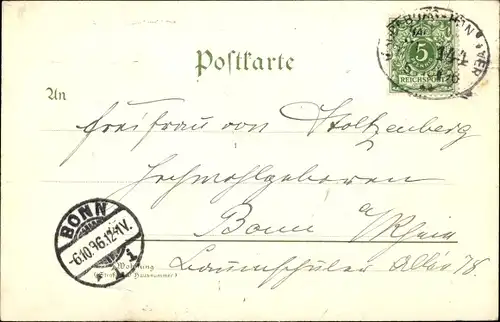 Postkarte
5
REICHSPOST
144
An
Freifrau von Stoltzenberg
Hochwohlgeboren
Bonn a/Rhein
Wohnung
(Straße und Hausnummer)
Baumschuler Allee 78.
BONN
-6.10.96.12-1V.
1